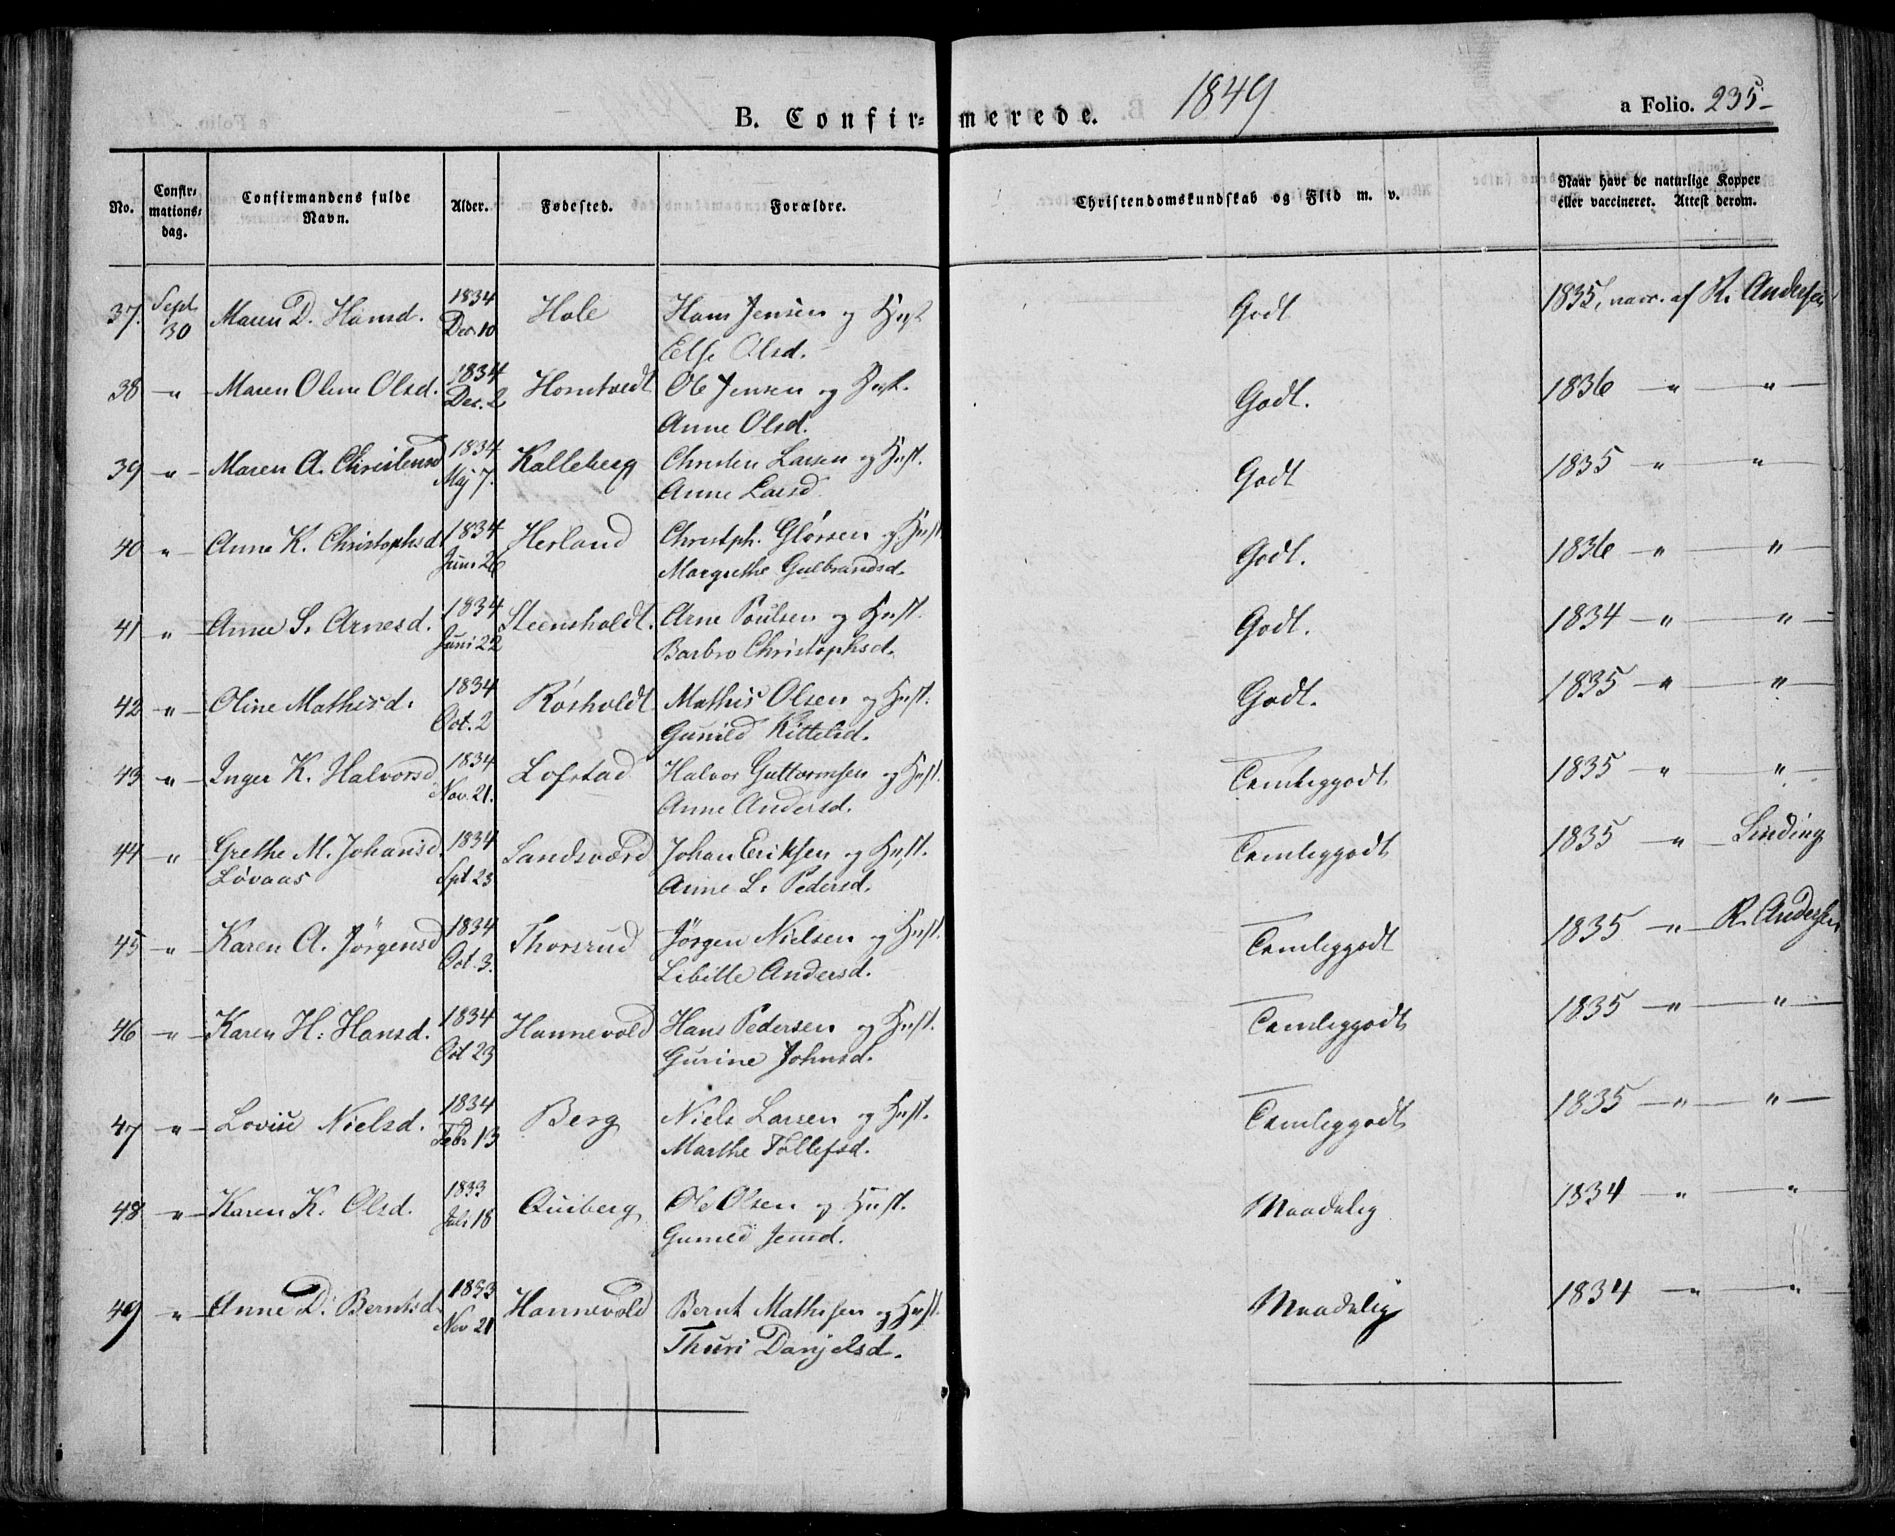 B. Confir= merede. 1849 a Folio. 235
No. Confir=mations=dag. Confirmandens fulde Navn. Alder. Fødested. Forældre. Christendomskundskab og Flid m. v. Naar havt de naturlige Kopper eller vaccineret. Attest derom.
37. Sept 30 Maren D. Hansd. 1834 Dec. 10 Hole Hans Jensen og Hust Godt 1835, vacc. af R. Andersen
Else Olsd.
38 " Maren Oline Olsd. 1834 Dec. 2 Homtvedt Ole Jensen og Hust. Godt. 1836 " "
Anne Olsd.
39 " Maren A. Christensd 1834 Maj 7. Kalleberg Christen Larsen og Hust. Godt 1835 " "
Anne Larsd
40 " Anne K. Christophsd 1834 Juni 26 Herland Christph. Glørsen og Hust Godt. 1836 " "
Margrethe Gulbrandsd.
41 " Anne S. Arnesd. 1834 Juni 22 Steensholdt. Arne Poulsen og Hust. Godt. 1834 " "
Barbro Christophsd.
42 " Oline Mathisd. 1834 Oct. 2 Røsholdt Mathis Olsen og Hust. Godt. 1835 " "
Gunild Kittelsd.
43 " Inger K. Halvorsd 1834 Nov. 21. Lofstad Halvor Guttormsen og Hust. Temliggodt 1835 " "
Anne Andersd.
44 " Grethe M. Johansd. 1834 Spt. 23 Sandsværd Johan Eriksen og Hust. Temliggodt 1835 " Linding
Løvaas Anne L. Pedersd.
45 " Karen A. Jørgensd 1834 Oct. 3. Thorsrud Jørgen Nielsen og Hust. Temliggodt 1835 " R. Andersen
Sibille Andersd.
46 " Karen H. Hansd. 1834 Oct 23 Hannevold Hans Pedersen og Hust. Temliggodt 1835 " "
Gurine Johnsd.
47 " Lovise Nielsd. 1834 Febr 13 Berg Niels Larsen og Hust. Temliggodt 1835 " "
Marthe Tollefsd.
48 " Karen K. Olsd. 1833 Juli 18 Quiberg Ole Olsen og Hust. Maadelig 1834 " "
Gunild Jensd.
49 " Anne D. Berntsd. 1833 Nov 21 Hannevold Bernt Mathisen og Hust. Maadelig 1834 " "
Thuri Danjelsd.